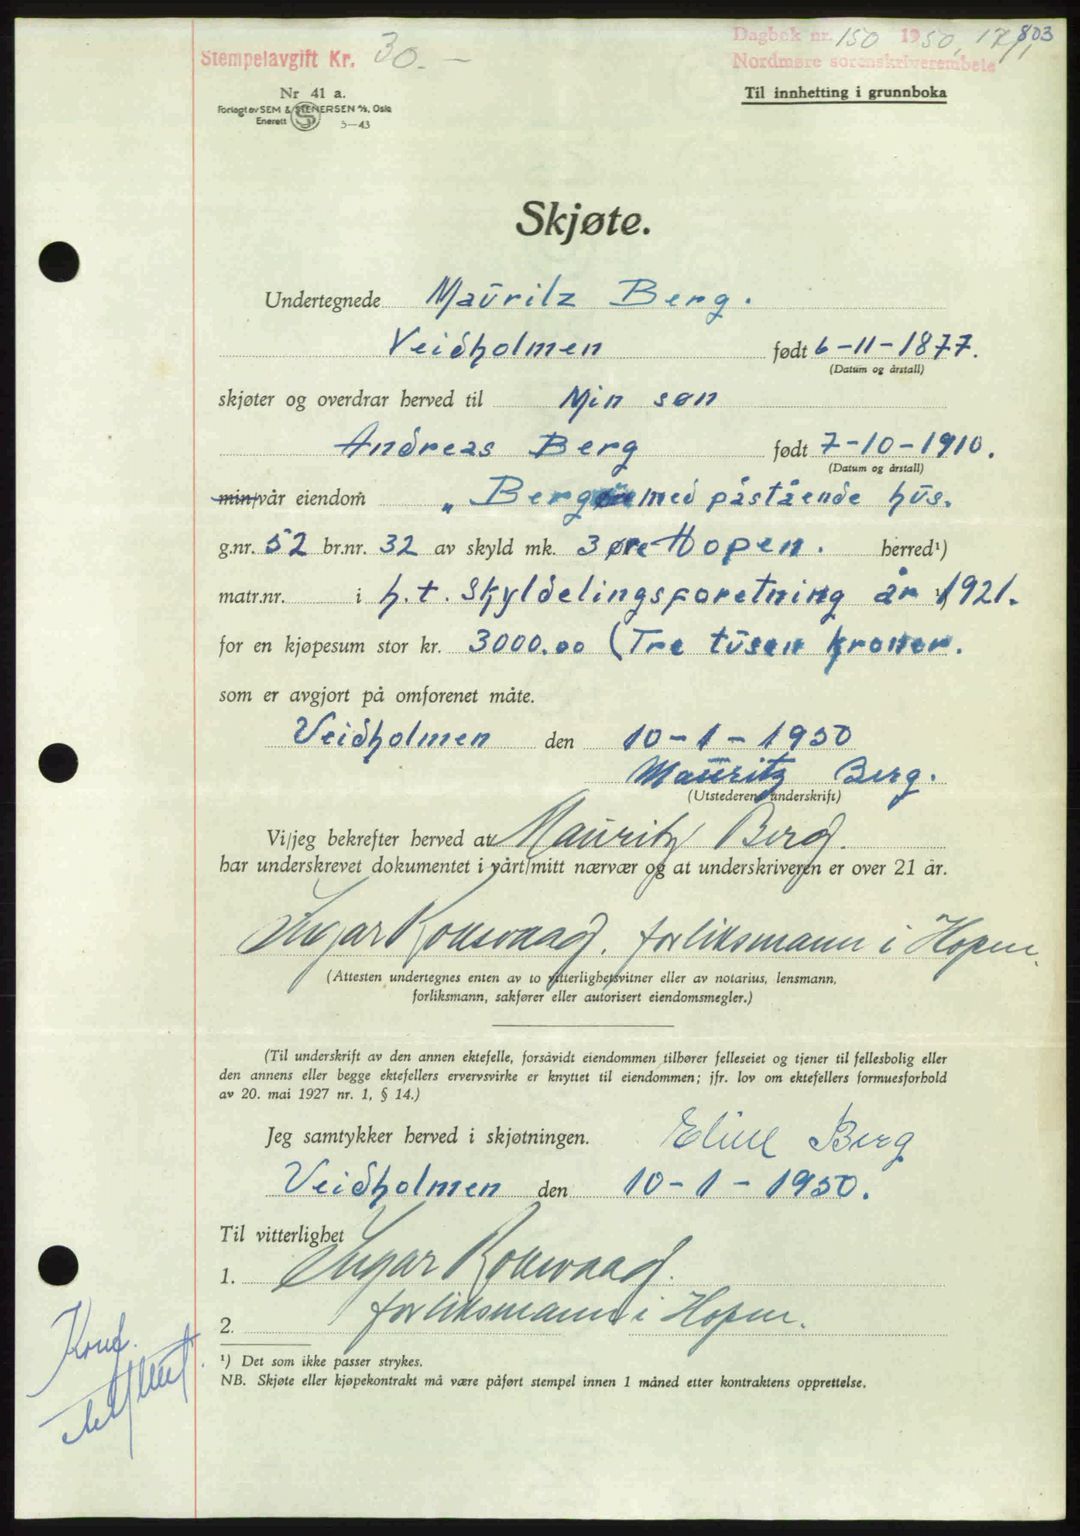 Stempelavgift Kr. 30.—
Dagbok nr. 150 1950, 17/1
803
Nordmøre sorenskriverembete
Nr 41 a.
Forlagt av SEM & STENERSEN A/S, Oslo
Enerett 5—43
Til innhefting i grunnboka
Skjøte.
Undertegnede Mauritz Berg.
Veidholmen født 6-11-1877.
(Datum og årstall)
skjøter og overdrar herved til Min søn
Andreas Berg født 7-10-1910.
(Datum og årstall)
min/vår eiendom „ Berg med påstående hus.
g.nr. 52 br.nr. 32 av skyld mk. 3 øre Hopen. herred¹)
matr.nr. i h.t. Skyldelingsforetning år 1921.
for en kjøpesum stor kr. 3000.00 (Tre tusen kroner.
som er avgjort på omforenet måte.
Veidholmen den 10-1-1950
Mauritz Berg.
(Utstederens underskrift)
Vi/jeg bekrefter herved at Mauritz Berg.
har underskrevet dokumentet i vårt/mitt nærvær og at underskriveren er over 21 år.
Ingar Roksvaag. forliksmann i Hopen.
(Attesten undertegnes enten av to vitterlighetsvitner eller av notarius, lensmann,
forliksmann, sakfører eller autorisert eiendomsmegler.)
(Til underskrift av den annen ektefelle, forsåvidt eiendommen tilhører felleseiet og tjener til fellesbolig eller
den annens eller begge ektefellers ervervsvirke er knyttet til eiendommen; jfr. lov om ektefellers formuesforhold
av 20. mai 1927 nr. 1, § 14.)
Jeg samtykker herved i skjøtningen. Eline Berg
Veidholmen den 10-1-1950.
Til vitterlighet
1. Ingar Roksvaag.
forliksmann i Hopen.
2.
Konf.
¹) Det som ikke passer strykes.
NB. Skjøte eller kjøpekontrakt må være påført stempel innen 1 måned etter kontraktens opprettelse.